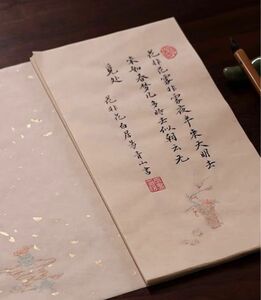 花非花霧非霧夜半来天明去
来如春夢几多时去似朝云无
覓处 花非花白居易山書